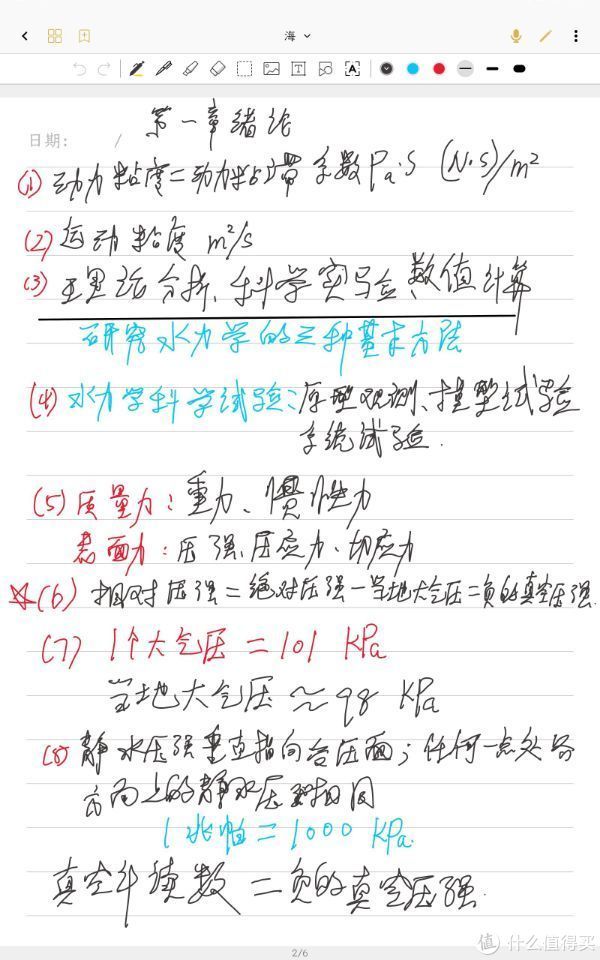 海
T
A
第一章绪论
日期： /
(1) 动力粘度=动力粘滞系数 Pa·S (N·S)/m²
(2) 运动粘度 m²/s
(3) 理论分析、科学实验、数值计算
研究水力学的三种基本方法
(4) 水力学科学试验：原型观测、模型试验
系统试验.
(5) 质量力：重力、惯性力
表面力：压强、压应力、切应力
☆(6) 相对压强=绝对压强-当地大气压=负的真空压强.
(7) 1个大气压=101 KPa
当地大气压≈98 KPa
(8) 静水压强垂直指向受压面；任何一点处各
方向上的静水压强相同
1兆帕=1000 KPa.
真空计读数=负的真空压强.
2/6
值 什么值得买